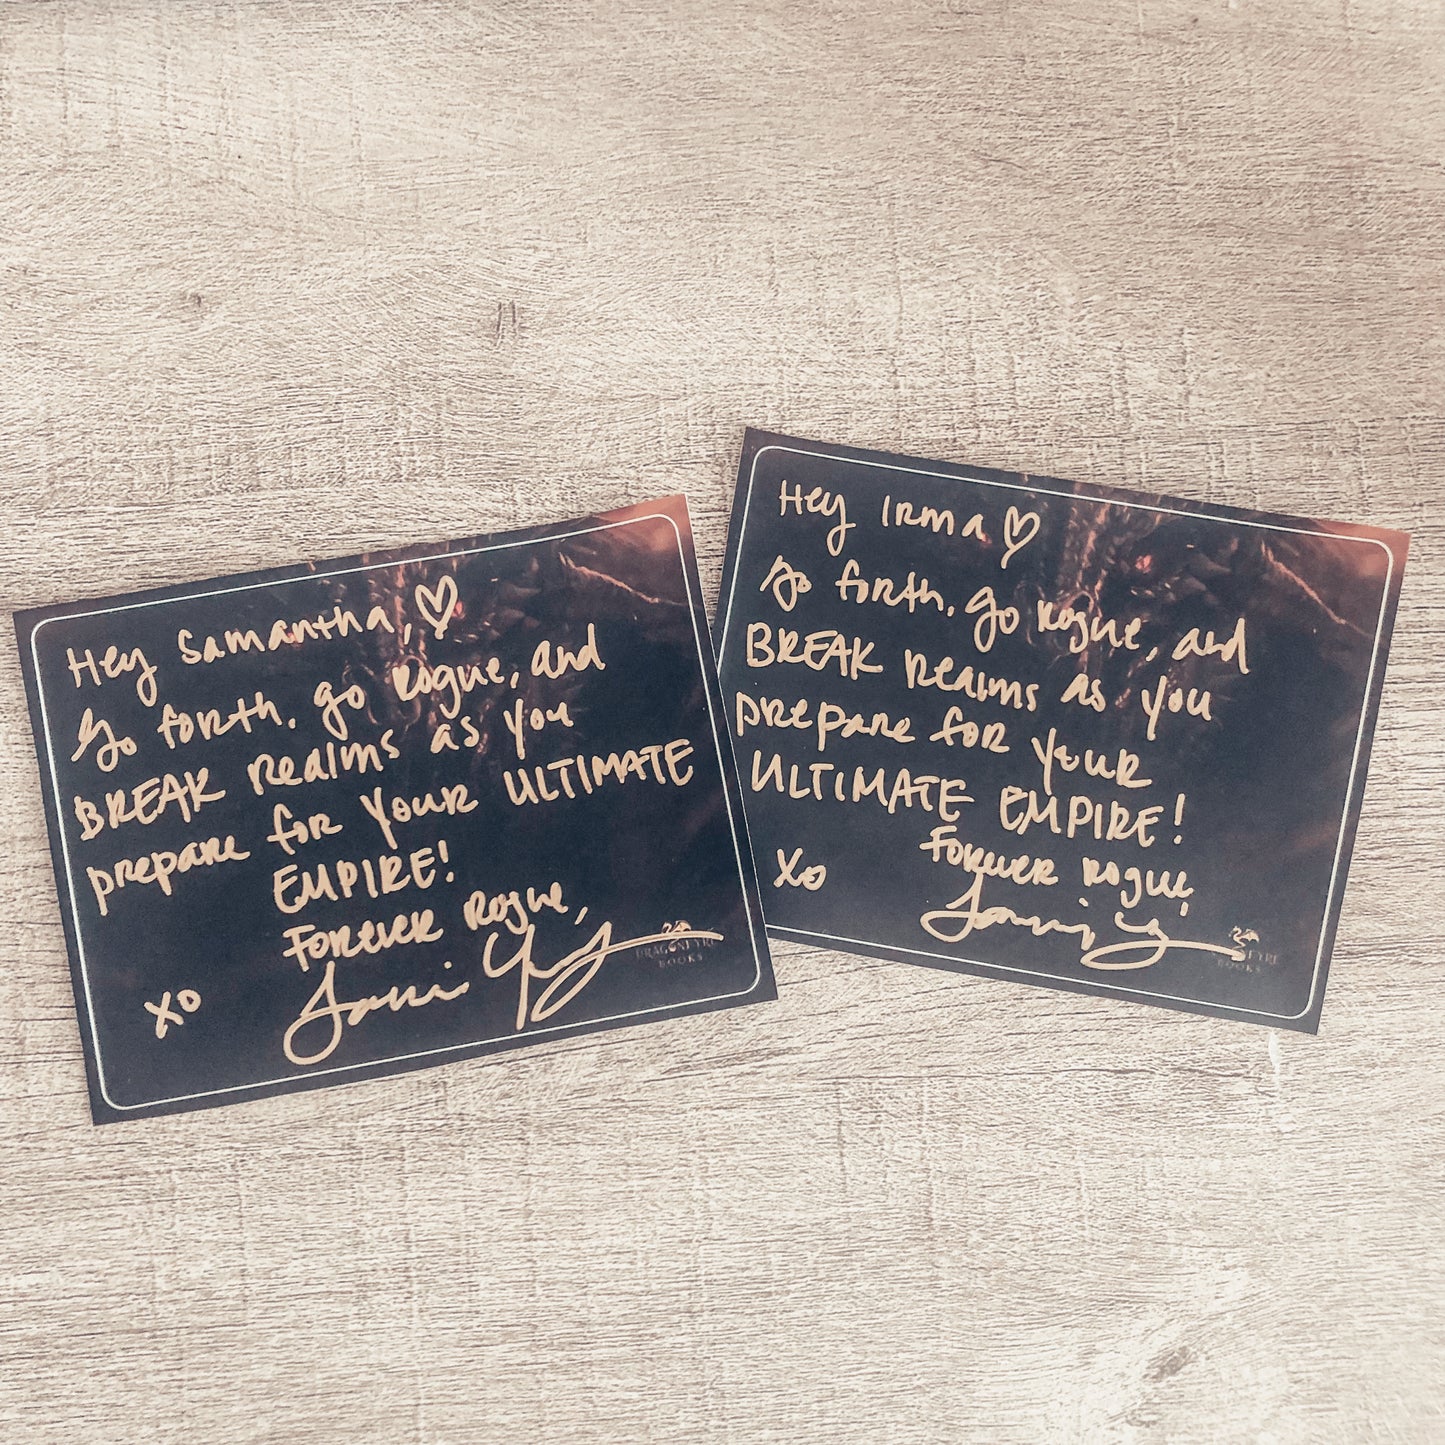 Hey Samantha, ♡
Go forth, go rogue, and
BREAK Realms as you
prepare for your ULTIMATE
EMPIRE!
Forever Rogue,
xo
DRAGONFYRE
BOOKS
Hey Irma ♡
Go forth, go rogue, and
BREAK Realms as you
prepare for your
ULTIMATE EMPIRE!
Forever Rogue,
xo
FYRE
BOOKS